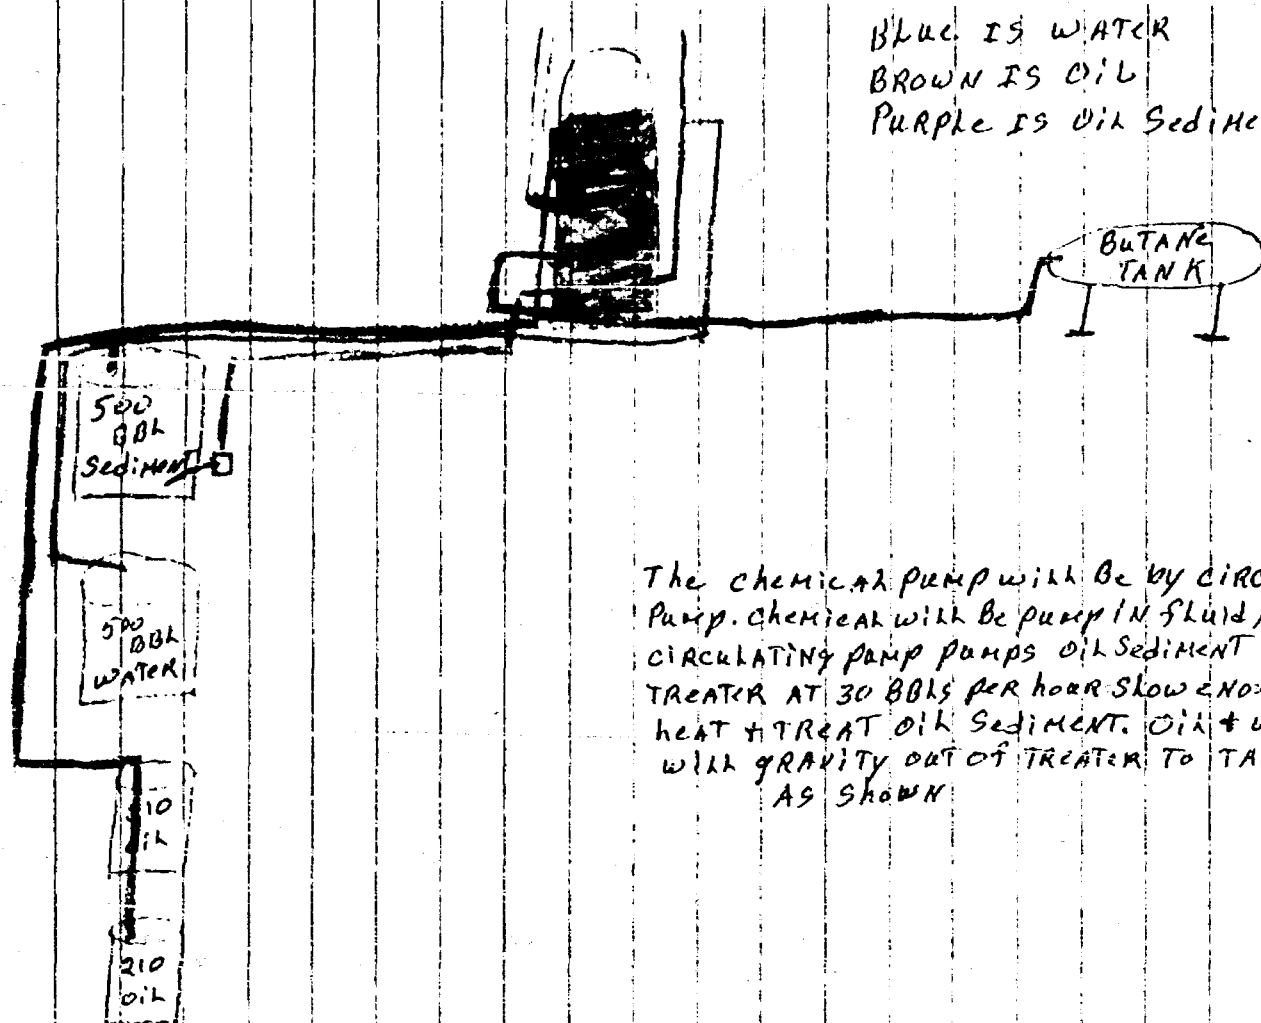 BLUE IS WATER
BROWN IS OIL
PURPLE IS OIL SEDIME
BUTANE
TANK
500
BBL
SEDIMENT
500
BBL
WATER
The CHEMICAL PUMP WILL Be by CIRC
PUMP. CHEMICAL WILL Be PUMP IN FLUID
CIRCULATING PUMP PUMPS OIL SEDIMENT
TREATER AT 30 BBLS PER hOUR SLOW ENO
hEAT + TREAT OIL SEDIMENT. OIL +
WILL GRAVITY OUT OF TREATER TO TA
AS ShOWN
10
IL
210
OIL